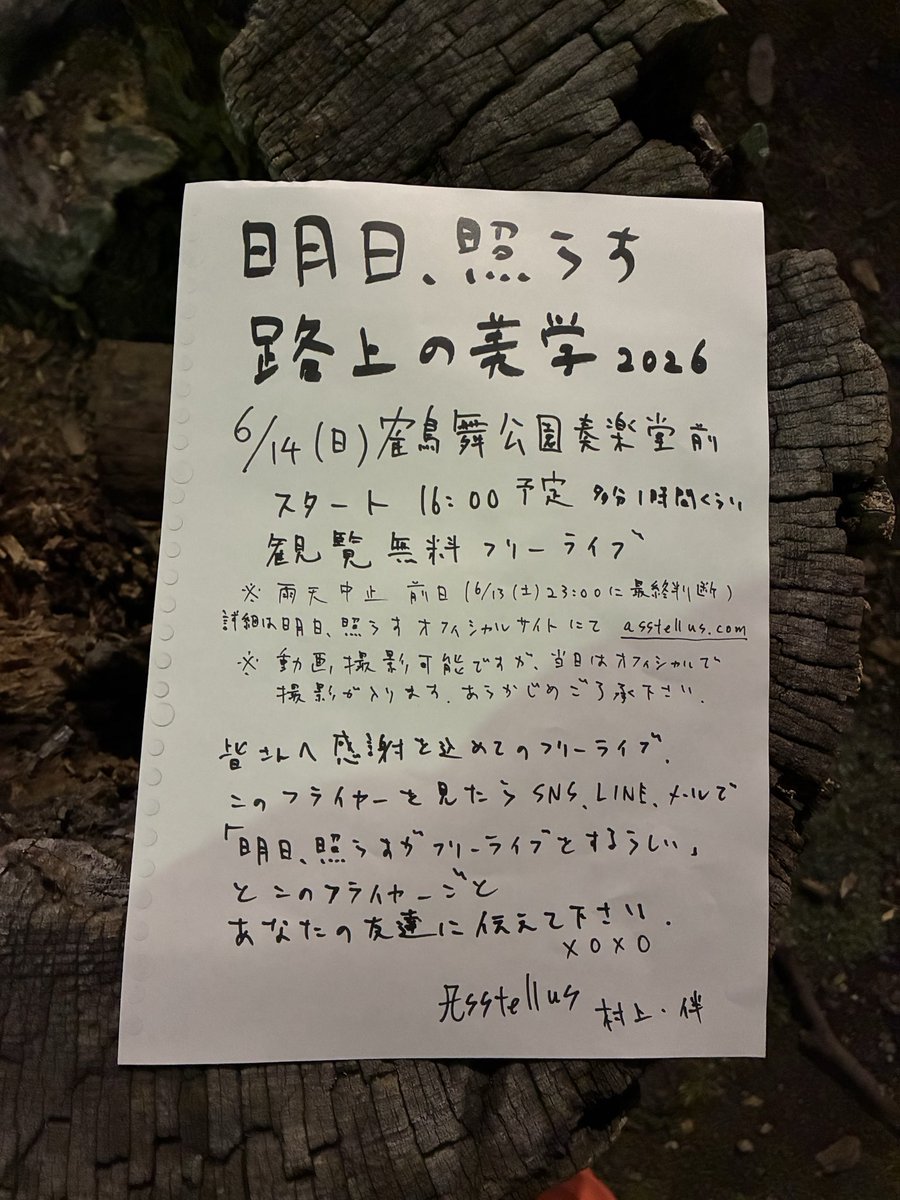 明日、照らす
路上の美学 2026
6/14(日)鶴舞公園奏楽堂前
スタート 16:00 予定 多分1時間くらい
観覧無料 フリーライブ
※ 雨天中止 前日(6/13(土)23:00に最終判断)
詳細は明日、照らすオフィシャルサイトにて asstellus.com
※ 動画、撮影可能ですが、当日はオフィシャルで
撮影が入ります。あらかじめご了承下さい。
皆さんへ感謝を込めてのフリーライブ。
このフライヤーを見たらSNS、LINE、メールで
「明日、照らすがフリーライブをするらしい」
とこのフライヤーごと
あなたの友達に伝えて下さい。
xoxo
Asstellus 村上・伴